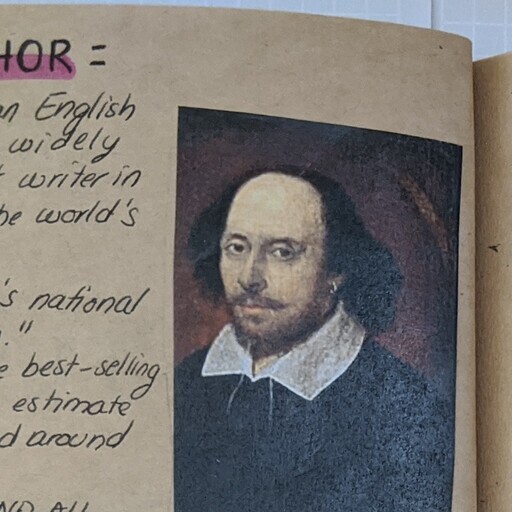 HOR =
an English
widely
writer in
he world's
's national
."
e best-selling
estimate
d around
ND ALL